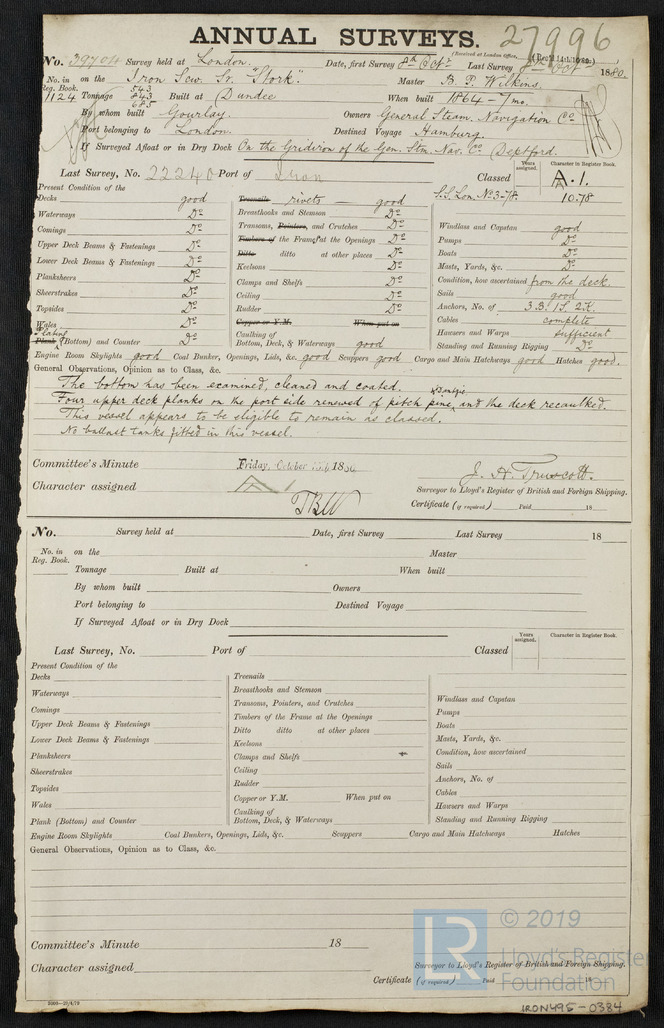 ANNUAL SURVEYS. 27996
(Received at London Office,
No. 39704 Survey held at London. Date, first Survey 8th Octr Last Survey 8th Oct 1880
No. in Reg. Book. on the Iron Scw. Sr. "Stork". Master B. P. Wilkins.
1124 Tonnage 543 843 685 Built at Dundee When built 1864-7mo.
By whom built Gourlay. Owners General Steam Navigation Co
Port belonging to London. Destined Voyage Hamburg.
If Surveyed Afloat or in Dry Dock On the Gridiron of the Gen. Stm. Nav. Co Deptford.
Last Survey, No. 22240 Port of Iron Classed Years assigned. Character in Register Book.
S.S. Lon. No. 3-78. A.1. 10.78
Present Condition of the
Decks good
Waterways Do
Comings Do
Upper Deck Beams & Fastenings Do
Lower Deck Beams & Fastenings Do
Planksheers Do
Sheerstrakes Do
Topsides Do
Wales Do
Plating
Plank (Bottom) and Counter Do
Treenails rivets good
Breasthooks and Stemson Do
Transoms, Pointers, and Crutches Do
Timbers of the Frame at the Openings Do
Ditto ditto at other places Do
Keelsons Do
Clamps and Shelfs Do
Ceiling Do
Rudder Do
Copper or Y.M. When put on
Caulking of
Bottom, Deck, & Waterways good
Windlass and Capstan good
Pumps Do
Boats Do
Masts, Yards, &c. Do
Condition, how ascertained from the deck.
Sails good
Anchors, No. of 3.B. 1S. 2K.
Cables complete
Hawsers and Warps sufficient
Standing and Running Rigging Do
Engine Room Skylights good Coal Bunkers, Openings, Lids, &c. good Scuppers good Cargo and Main Hatchways good Hatches good.
General Observations, Opinion as to Class, &c.
The bottom has been examined, cleaned and coated.
Four upper deck planks on the port side renewed of pitch pine & Dantzic and the deck recaulked.
This vessel appears to be eligible to remain as classed.
No ballast tanks fitted in this vessel.
Committee's Minute Friday, October 18
Character assigned A 1
J. H. Truscott.
Surveyor to Lloyd's Register of British and Foreign Shipping.
TBW
Certificate (if required) Paid 18
No. Survey held at Date, first Survey Last Survey 18
No. in Reg. Book. on the Master
Tonnage Built at When built
By whom built Owners
Port belonging to Destined Voyage
If Surveyed Afloat or in Dry Dock
Last Survey, No. Port of Classed Years assigned. Character in Register Book.
Present Condition of the
Decks
Waterways
Comings
Upper Deck Beams & Fastenings
Lower Deck Beams & Fastenings
Planksheers
Sheerstrakes
Topsides
Wales
Plank (Bottom) and Counter
Treenails
Breasthooks and Stemson
Transoms, Pointers, and Crutches
Timbers of the Frame at the Openings
Ditto ditto at other places
Keelsons
Clamps and Shelfs
Ceiling
Rudder
Copper or Y.M. When put on
Caulking of
Bottom, Deck, & Waterways
Windlass and Capstan
Pumps
Boats
Masts, Yards, &c.
Condition, how ascertained
Sails
Anchors, No. of
Cables
Hawsers and Warps
Standing and Running Rigging
Engine Room Skylights Coal Bunkers, Openings, Lids, &c. Scuppers Cargo and Main Hatchways Hatches
General Observations, Opinion as to Class, &c.
Committee's Minute 18
Character assigned
Surveyor to Lloyd's Register of British and Foreign Shipping.
Certificate (if required) Paid 18
LR © 2019
Lloyd's Register
Foundation
IRON495-0384